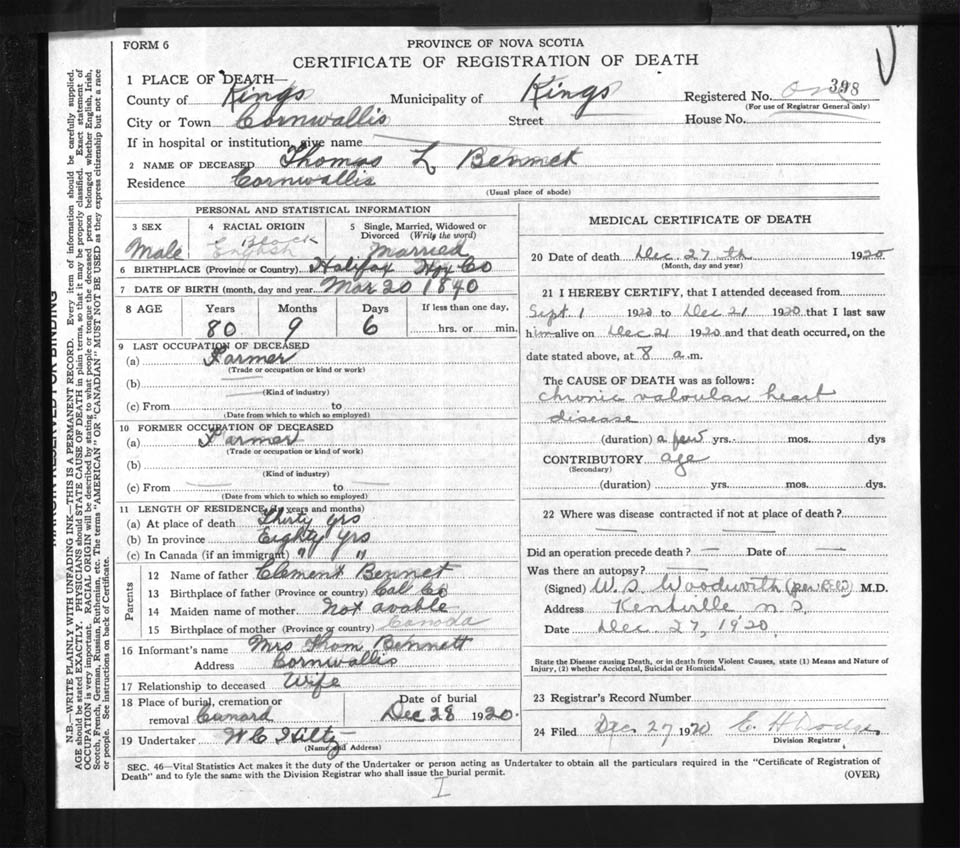 FORM 6
PROVINCE OF NOVA SCOTIA
CERTIFICATE OF REGISTRATION OF DEATH
1 PLACE OF DEATH—
County of Kings Municipality of Kings Registered No. 398
(For use of Registrar General only)
City or Town Cornwallis Street House No.
If in hospital or institution, give name
2 NAME OF DECEASED Thomas L Bennet
Residence Cornwallis
(Usual place of abode)
PERSONAL AND STATISTICAL INFORMATION
3 SEX Male
4 RACIAL ORIGIN English Black
5 Single, Married, Widowed or Divorced (Write the word) Married
6 BIRTHPLACE (Province or Country) Halifax Hfx Co
7 DATE OF BIRTH (month, day and year) Mar 20 1840
8 AGE Years Months Days If less than one day,
80 9 6 hrs. or min.
9 LAST OCCUPATION OF DECEASED
(a) Farmer
(Trade or occupation or kind or work)
(b)
(Kind of industry)
(c) From to
(Date from which to which so employed)
10 FORMER OCCUPATION OF DECEASED
(a) Farmer
(Trade or occupation or kind of work)
(b)
(Kind of industry)
(c) From to
(Date from which to which so employed)
11 LENGTH OF RESIDENCE (in years and months)
(a) At place of death Thirty yrs
(b) In province Eighty yrs
(c) In Canada (if an immigrant) " "
Parents
12 Name of father Clement Bennet
13 Birthplace of father (Province or country) Col Co
14 Maiden name of mother Not avable
15 Birthplace of mother (Province or country) Canada
16 Informant's name Mrs Thom Bennett
Address Cornwallis
17 Relationship to deceased Wife
18 Place of burial, cremation or removal Cunard Date of burial Dec 28 1920.
19 Undertaker W C Hiltz
(Name and Address)
MEDICAL CERTIFICATE OF DEATH
20 Date of death Dec. 27 th 1920
(Month, day and year)
21 I HEREBY CERTIFY, that I attended deceased from
Sept 1 1920 to Dec 21 1920 that I last saw
him alive on Dec 21 1920 and that death occurred, on the
date stated above, at 8 a.m.
The CAUSE OF DEATH was as follows:
chronic valvular heart
disease
(duration) a few yrs. mos. dys
CONTRIBUTORY age
(Secondary)
(duration) yrs. mos. dys.
22 Where was disease contracted if not at place of death?
Did an operation precede death? — Date of —
Was there an autopsy? —
(Signed) W. S. Woodworth M.D.
Address Kentville N.S.
Date Dec 27, 1920
State the Disease causing Death, or in death from Violent Causes, state (1) Means and Nature of
Injury, (2) whether Accidental, Suicidal or Homicidal.
23 Registrar's Record Number
24 Filed Dec 27 1920 E H Dodge
Division Registrar
SEC. 46—Vital Statistics Act makes it the duty of the Undertaker or person acting as Undertaker to obtain all the particulars required in the "Certificate of Registration of
Death" and to fyle the same with the Division Registrar who shall issue the burial permit.
(OVER)
MARGIN RESERVED FOR BINDING
N.B.—WRITE PLAINLY WITH UNFADING INK—THIS IS A PERMANENT RECORD. Every item of information should be carefully supplied.
AGE should be stated EXACTLY. PHYSICIANS should STATE CAUSE OF DEATH in plain terms, so that it may be properly classified. Exact statement of
OCCUPATION is very important. RACIAL ORIGIN will be described by stating to what people or tongue the deceased person belonged, whether English, Irish,
Scotch, French, German, Russian, Ruthenian, etc. The terms "AMERICAN" OR "CANADIAN" MUST NOT BE USED as they express citizenship but not a race
or people. See instructions on back of Certificate.